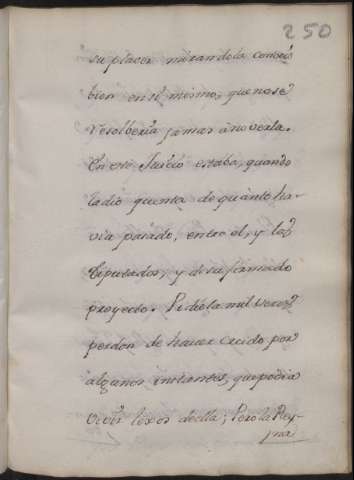 250
su placer mirandola conoció
bien en sí mismo, que no se
resolberia jamas à no verla.
En este Juicio estaba, quando
la dió quenta de quànto ha-
via pasado, entre el, y los
Diputados, y de su formado
proyecto. Pidióla mil veces
perdon de haver creido por
algunos instantes, que podia
vivir lexos de ella; Pero la Rey-
na